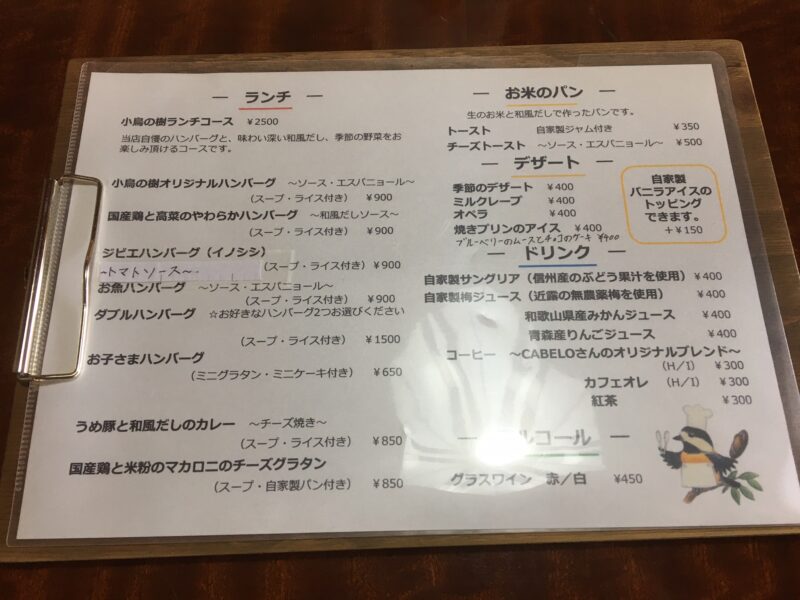 ― ランチ ―
小鳥の樹ランチコース ¥2500
当店自慢のハンバーグと、味わい深い和風だし、季節の野菜をお
楽しみ頂けるコースです。
小鳥の樹オリジナルハンバーグ ～ソース・エスパニョール～
(スープ・ライス付き) ¥900
国産鶏と高菜のやわらかハンバーグ ～和風だしソース～
(スープ・ライス付き) ¥900
ジビエハンバーグ（イノシシ）
(スープ・ライス付き) ¥900
～トマトソース～
お魚ハンバーグ ～ソース・エスパニョール～
(スープ・ライス付き) ¥900
ダブルハンバーグ ☆お好きなハンバーグ2つお選びください
(スープ・ライス付き) ¥1500
お子さまハンバーグ
(ミニグラタン・ミニケーキ付き) ¥650
うめ豚と和風だしのカレー ～チーズ焼き～
(スープ・ライス付き) ¥850
国産鶏と米粉のマカロニのチーズグラタン
(スープ・自家製パン付き) ¥850
― お米のパン ―
生のお米と和風だしで作ったパンです。
トースト 自家製ジャム付き ¥350
チーズトースト ～ソース・エスパニョール～ ¥500
― デザート ―
季節のデザート ¥400
ミルクレープ ¥400
オペラ ¥400
焼きプリンのアイス ¥400
ブルーベリーのムースとチョコのケーキ ¥400
自家製
バニラアイスの
トッピング
できます。
＋¥150
― ドリンク ―
自家製サングリア（信州産のぶどう果汁を使用） ¥400
自家製梅ジュース（近露の無農薬梅を使用） ¥400
和歌山県産みかんジュース ¥400
青森産りんごジュース ¥400
コーヒー ～CABELOさんのオリジナルブレンド～
(H／I) ¥300
カフェオレ (H／I) ¥300
紅茶 ¥300
― アルコール ―
グラスワイン 赤／白 ¥450